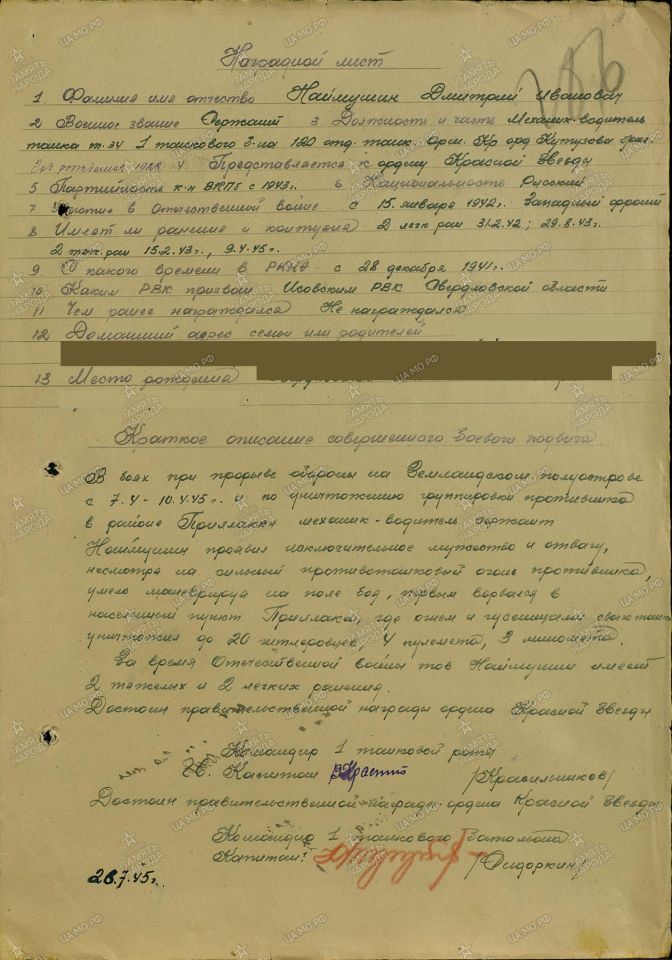 Наградной лист
1 Фамилия имя отчество Наймушин Дмитрий Иванович
2 Военное звание Сержант 3. Должность и часть Механик-водитель
танка т-34 1 танкового б-на 120 отд. танк. Орш. Кр орд Кутузова бриг.
Год рождения 4 Представляется к ордену Красной Звезды
5 Партийность к-т ВКПБ с 1943г. 6 Национальность Русский
7 Участие в Отечественной войне с 15. января 1942г. Западный фронт
8 Имеет ли ранения и контузии 2 легк ран 31.2.42; 29.8.43г.
2 тяж. ран 15.2.43г., 9.4.45г.
9 С какого времени в РККА с 28 декабря 1941г.
10 Каким РВК призван Исовским РВК Свердловской области
11 Чем ранее награждался Не награждался
12 Домашний адрес семьи или родителей
13 Место рождения
Краткое описание совершенного боевого подвига
В боях при прорыве обороны на Земландском полуострове
с 7.4-10.4.45г. и по уничтожению группировки противника
в районе Приллакен механик-водитель сержант
Наймушин проявил исключительное мужество и отвагу,
несмотря на сильный противотанковый огонь противника,
умело маневрируя на поле боя, первым ворвался в
населенный пункт Приллакен, где огнем и гусеницами своего танка
уничтожил до 20 гитлеровцев, 4 пулемета, 3 миномета.
За время Отечественной войны тов Наймушин имеет
2 тяжелых и 2 легких ранения.
Достоин правительственной награды ордена Красной Звезды
Командир 1 танковой роты
Гв. Капитан /Красильников/
Достоин правительственной награды ордена Красной Звезды
Командир 1 танкового батальона
Капитан: /Сидоркин/
28.7.45г.